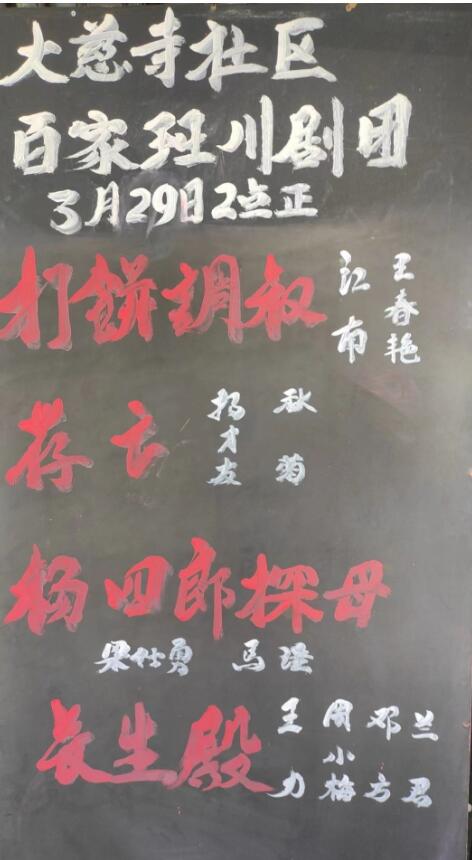 大慈寺社区
百家班川剧团
3月29日2点正
打餅調叔 江南 王春艳
荐云 杨才友 秋菊
杨四郎探母
梁仕勇 马强
长生殿 王力 周小梅 邓方 兰君